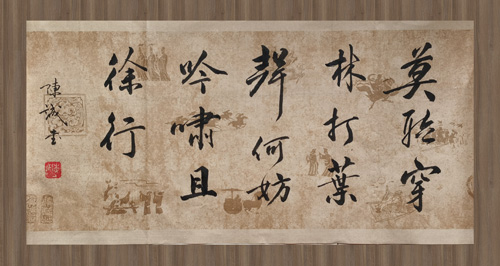 莫聽穿
林打葉
聲何妨
吟嘯且
徐行
陳誠書